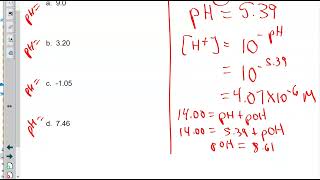 pH= a. 9.0
pH= b. 3.20
pH= c. -1.05
pH= d. 7.46
pH = 5.39
[H+] = 10^-pH
= 10^-5.39
= 4.07×10^-6 M
14.00 = pH + pOH
14.00 = 5.39 + pOH
pOH = 8.61